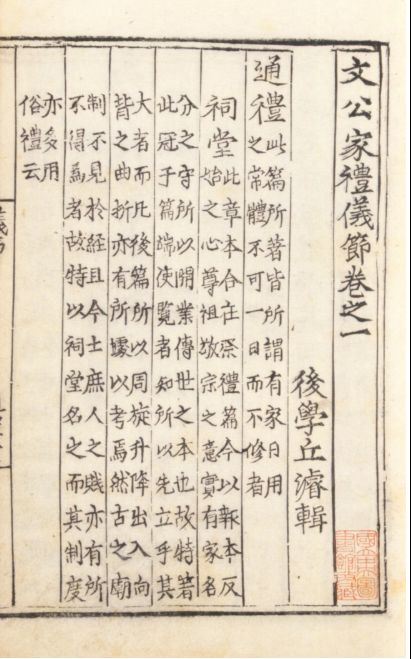 文公家禮儀節卷之一
後學丘濬輯
通禮此篇所著皆所謂有家日用
之常體不可一日而不修者
祠堂此章本合在祭禮篇今以報本反
始之心尊祖敬宗之意實有家名
分之守所以開業傳世之本也故特著
此冠于篇端使覽者知所以先立乎其
大者而凡後篇所以周旋升降出入向
背之曲折亦有所據以考焉然古之廟
制不見於經且今士庶人之賤亦有所
不得爲者故特以祠堂名之而其制度
亦多用
俗禮云